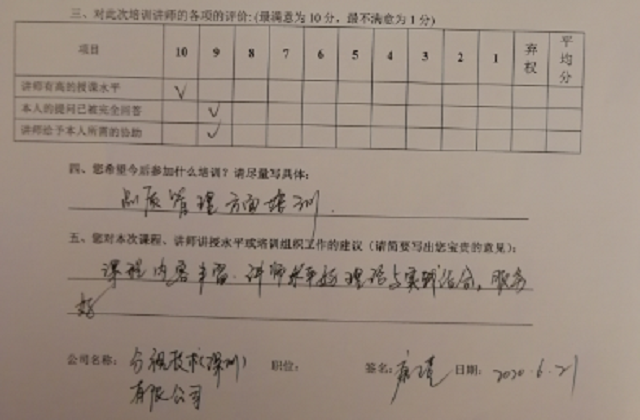 三、对此次培训讲师的各项的评价:(最满意为10分，最不满意为1分)
项目 10 9 8 7 6 5 4 3 2 1 弃权 平均分
讲师有高的授课水平 √
本人的提问已被完全回答 √
讲师给予本人所需的协助 √
四、您希望今后参加什么培训？请尽量写具体：
品质管理方面培训.
五、您对本次课程、讲师讲授水平或培训组织工作的建议（请简要写出您宝贵的意见）：
课程内容丰富.讲师水平好 理论与实践结合，服务
好
公司名称： 视技术(深圳) 职位： 签名： 日期：2020.6.21
有限公司